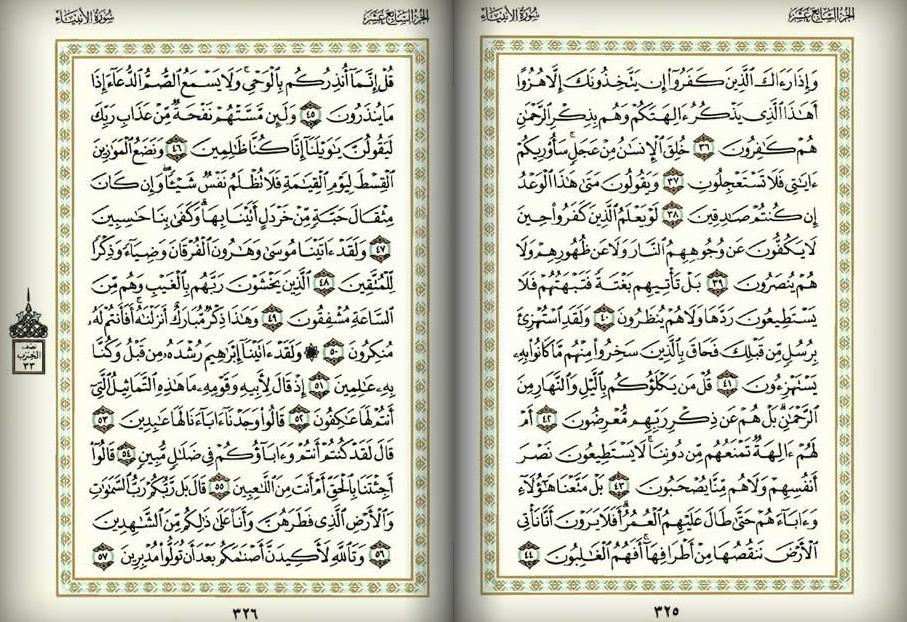 الجزء السابع عشر
سورة الأنبياء
وَإِذَا رَءَاكَ ٱلَّذِينَ كَفَرُوٓا۟ إِن يَتَّخِذُونَكَ إِلَّا هُزُوًا
أَهَـٰذَا ٱلَّذِى يَذْكُرُ ءَالِهَتَكُمْ وَهُم بِذِكْرِ ٱلرَّحْمَـٰنِ
هُمْ كَـٰفِرُونَ ٣٦ خُلِقَ ٱلْإِنسَـٰنُ مِنْ عَجَلٍ ۚ سَأُو۟رِيكُمْ
ءَايَـٰتِى فَلَا تَسْتَعْجِلُونِ ٣٧ وَيَقُولُونَ مَتَىٰ هَـٰذَا ٱلْوَعْدُ
إِن كُنتُمْ صَـٰدِقِينَ ٣٨ لَوْ يَعْلَمُ ٱلَّذِينَ كَفَرُوا۟ حِينَ
لَا يَكُفُّونَ عَن وُجُوهِهِمُ ٱلنَّارَ وَلَا عَن ظُهُورِهِمْ وَلَا
هُمْ يُنصَرُونَ ٣٩ بَلْ تَأْتِيهِم بَغْتَةً فَتَبْهَتُهُمْ فَلَا
يَسْتَطِيعُونَ رَدَّهَا وَلَا هُمْ يُنظَرُونَ ٤٠ وَلَقَدِ ٱسْتُهْزِئَ
بِرُسُلٍ مِّن قَبْلِكَ فَحَاقَ بِٱلَّذِينَ سَخِرُوا۟ مِنْهُم مَّا كَانُوا۟ بِهِۦ
يَسْتَهْزِءُونَ ٤١ قُلْ مَن يَكْلَؤُكُم بِٱلَّيْلِ وَٱلنَّهَارِ مِنَ
ٱلرَّحْمَـٰنِ ۗ بَلْ هُمْ عَن ذِكْرِ رَبِّهِم مُّعْرِضُونَ ٤٢ أَمْ
لَهُمْ ءَالِهَةٌ تَمْنَعُهُم مِّن دُونِنَا ۚ لَا يَسْتَطِيعُونَ نَصْرَ
أَنفُسِهِمْ وَلَا هُم مِّنَّا يُصْحَبُونَ ٤٣ بَلْ مَتَّعْنَا هَـٰٓؤُلَآءِ
وَءَابَآءَهُمْ حَتَّىٰ طَالَ عَلَيْهِمُ ٱلْعُمُرُ ۗ أَفَلَا يَرَوْنَ أَنَّا نَأْتِى
ٱلْأَرْضَ نَنقُصُهَا مِنْ أَطْرَافِهَآ ۚ أَفَهُمُ ٱلْغَـٰلِبُونَ ٤٤
٣٢٥
الجزء السابع عشر
سورة الأنبياء
قُلْ إِنَّمَآ أُنذِرُكُم بِٱلْوَحْىِ ۚ وَلَا يَسْمَعُ ٱلصُّمُّ ٱلدُّعَآءَ إِذَا
مَا يُنذَرُونَ ٤٥ وَلَئِن مَّسَّتْهُمْ نَفْحَةٌ مِّنْ عَذَابِ رَبِّكَ
لَيَقُولُنَّ يَـٰوَيْلَنَآ إِنَّا كُنَّا ظَـٰلِمِينَ ٤٦ وَنَضَعُ ٱلْمَوَٰزِينَ
ٱلْقِسْطَ لِيَوْمِ ٱلْقِيَـٰمَةِ فَلَا تُظْلَمُ نَفْسٌ شَيْـًٔا ۖ وَإِن كَانَ
مِثْقَالَ حَبَّةٍ مِّنْ خَرْدَلٍ أَتَيْنَا بِهَا ۗ وَكَفَىٰ بِنَا حَـٰسِبِينَ
٤٧ وَلَقَدْ ءَاتَيْنَا مُوسَىٰ وَهَـٰرُونَ ٱلْفُرْقَانَ وَضِيَآءً وَذِكْرًا
لِّلْمُتَّقِينَ ٤٨ ٱلَّذِينَ يَخْشَوْنَ رَبَّهُم بِٱلْغَيْبِ وَهُم مِّنَ
ٱلسَّاعَةِ مُشْفِقُونَ ٤٩ وَهَـٰذَا ذِكْرٌ مُّبَارَكٌ أَنزَلْنَـٰهُ ۚ أَفَأَنتُمْ لَهُۥ
مُنكِرُونَ ٥٠ ۞ وَلَقَدْ ءَاتَيْنَآ إِبْرَٰهِيمَ رُشْدَهُۥ مِن قَبْلُ وَكُنَّا
بِهِۦ عَـٰلِمِينَ ٥١ إِذْ قَالَ لِأَبِيهِ وَقَوْمِهِۦ مَا هَـٰذِهِ ٱلتَّمَاثِيلُ ٱلَّتِىٓ
أَنتُمْ لَهَا عَـٰكِفُونَ ٥٢ قَالُوا۟ وَجَدْنَآ ءَابَآءَنَا لَهَا عَـٰبِدِينَ ٥٣
قَالَ لَقَدْ كُنتُمْ أَنتُمْ وَءَابَآؤُكُمْ فِى ضَلَـٰلٍ مُّبِينٍ ٥٤ قَالُوٓا۟
أَجِئْتَنَا بِٱلْحَقِّ أَمْ أَنتَ مِنَ ٱللَّـٰعِبِينَ ٥٥ قَالَ بَل رَّبُّكُمْ رَبُّ ٱلسَّمَـٰوَٰتِ
وَٱلْأَرْضِ ٱلَّذِى فَطَرَهُنَّ وَأَنَا۠ عَلَىٰ ذَٰلِكُم مِّنَ ٱلشَّـٰهِدِينَ
٥٦ وَتَٱللَّهِ لَأَكِيدَنَّ أَصْنَـٰمَكُم بَعْدَ أَن تُوَلُّوا۟ مُدْبِرِينَ ٥٧
٣٢٦
نصف
الحزب
٣٣